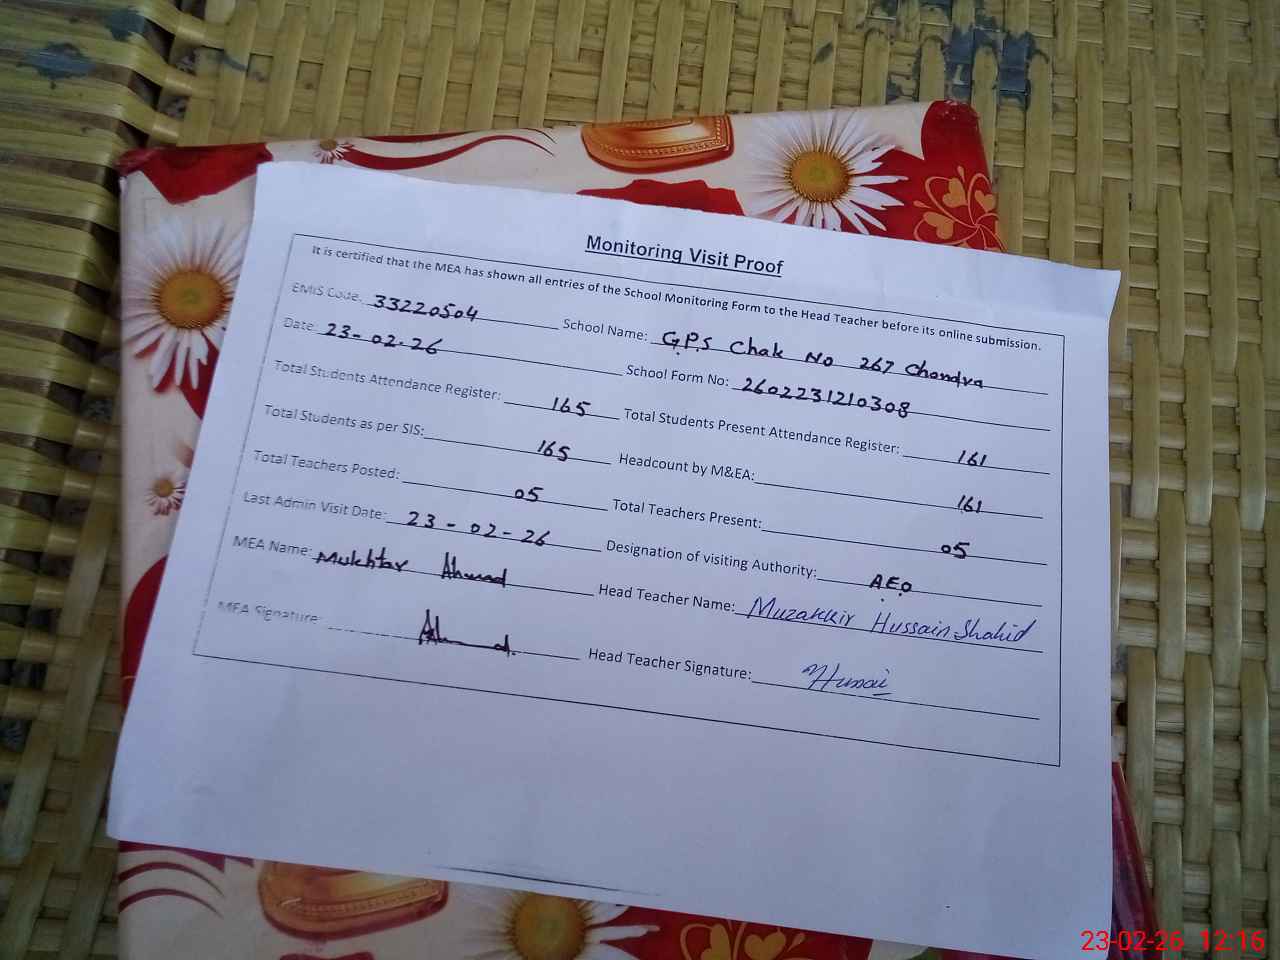 Monitoring Visit Proof
It is certified that the MEA has shown all entries of the School Monitoring Form to the Head Teacher before its online submission.
EMIS Code: 33220504 School Name: G.P.S Chak No 267 Chondra
Date: 23-02-26 School Form No: 2602231210308
Total Students Attendance Register: 165 Total Students Present Attendance Register: 161
Total Students as per SIS: 165 Headcount by M&EA: 161
Total Teachers Posted: 05 Total Teachers Present: 05
Last Admin Visit Date: 23-02-26 Designation of visiting Authority: A.E.O
MEA Name: Mukhtar Ahmad Head Teacher Name: Muzakkir Hussain Shahid
MEA Signature: Ahmad. Head Teacher Signature: Hussai
23-02-26 12:16